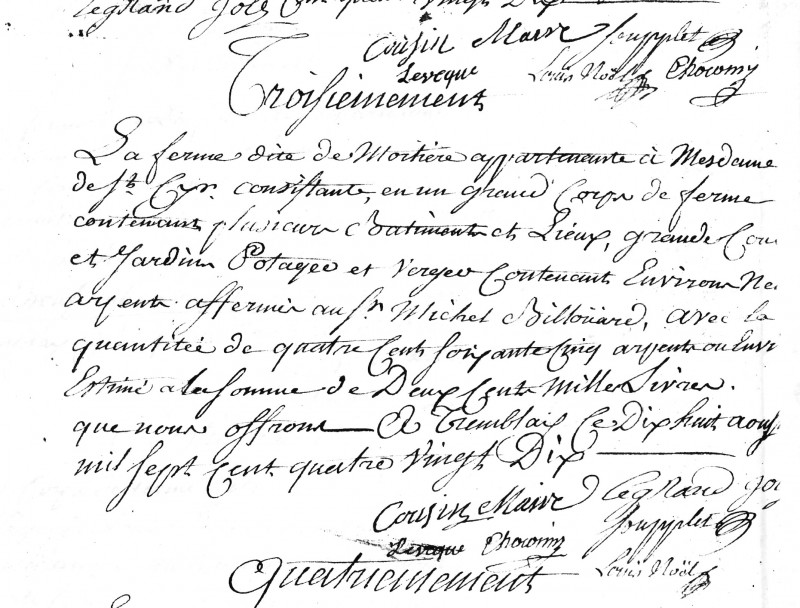 Legrand Cent quatre Vingt Dix
Cousin Maire Soupplet
Leveque Louis Noël Chocomy
Troisiemement
La ferme dite de Mortière appartenante à Mesdame
de St. Cyr. consistante, en un grand Corps de ferme
contenant plusieurs Batiments et Lieux, grande Cou
et Jardin Potager et Verger Contenant Environ Ne
arpents affermée au Sr. Michel Billoüard, avec la
quantitée de quatre Cent Soixante Cinq arpents ou Envi
Estimé a la somme de Deux Cents Mille Livres.
que nous offrons — A Tremblay Ce Dix huit aous
mil sept Cent quatre Vingt Dix
Cousin Maire Legrand
Leveque Chocomy Soupplet
Quatriemement Louis Noël